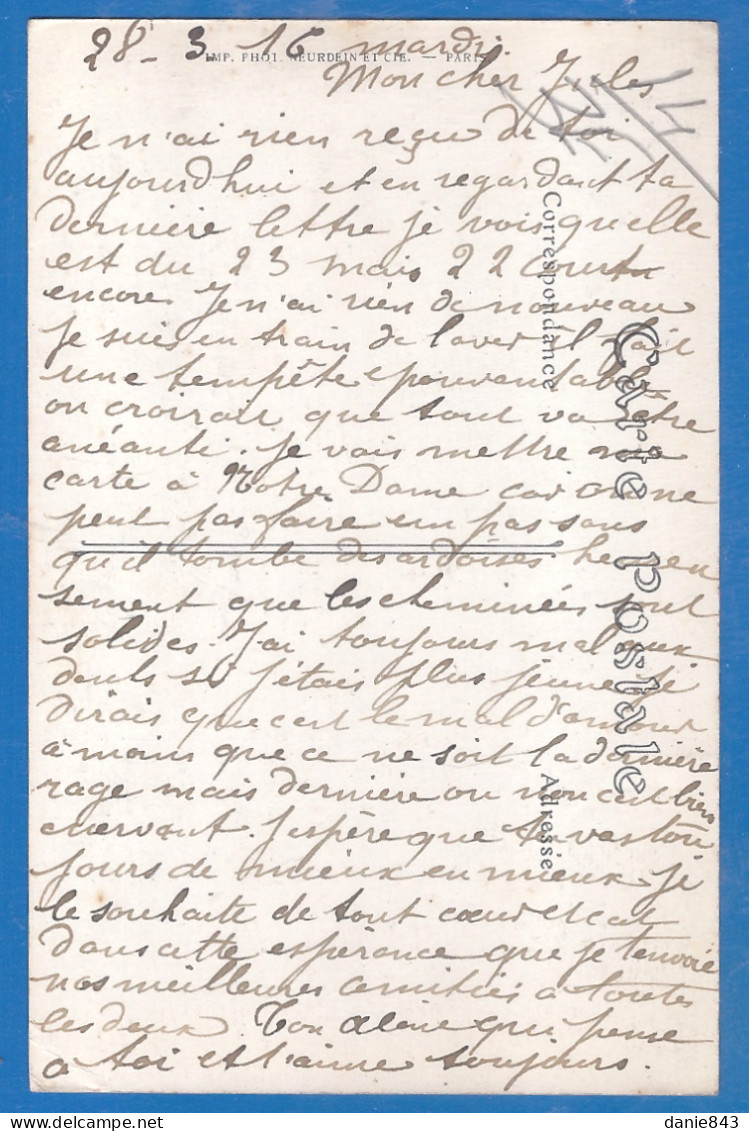 28 - 3 16 mardi
IMP. PHOT. NEURDEIN ET CIE. — PARIS
Mon cher Jules
Je n'ai rien reçu de toi
aujourd'hui et en regardant ta
dernière lettre je vois quelle
est du 23 mais 22 courts
encore Je n'ai rien de nouveau
Je suis en train de laver il fait
une tempête épouvantable
on croirait que tout va être
anéanti. Je vais mettre ma
carte à Notre Dame car on ne
peut pas faire un pas sans
qu'il tombe des ardoises heureu
sement que les cheminées sont
solides. J'ai toujours mal aux
dents si j'étais plus jeune je
dirais que c'est le mal d'amour
à moins que ce ne soit la dernière
rage mais dernière ou non c'est bien
enervant. J'espère que tu vas tou
jours de mieux en mieux je
le souhaite de tout cœur et c'est
dans cette espérance que je t'envoie
nos meilleures amitiés a toutes
les deux. Ton qui pense
a toi et t'aime toujours.
Carte postale
Correspondance
Adresse
danie843